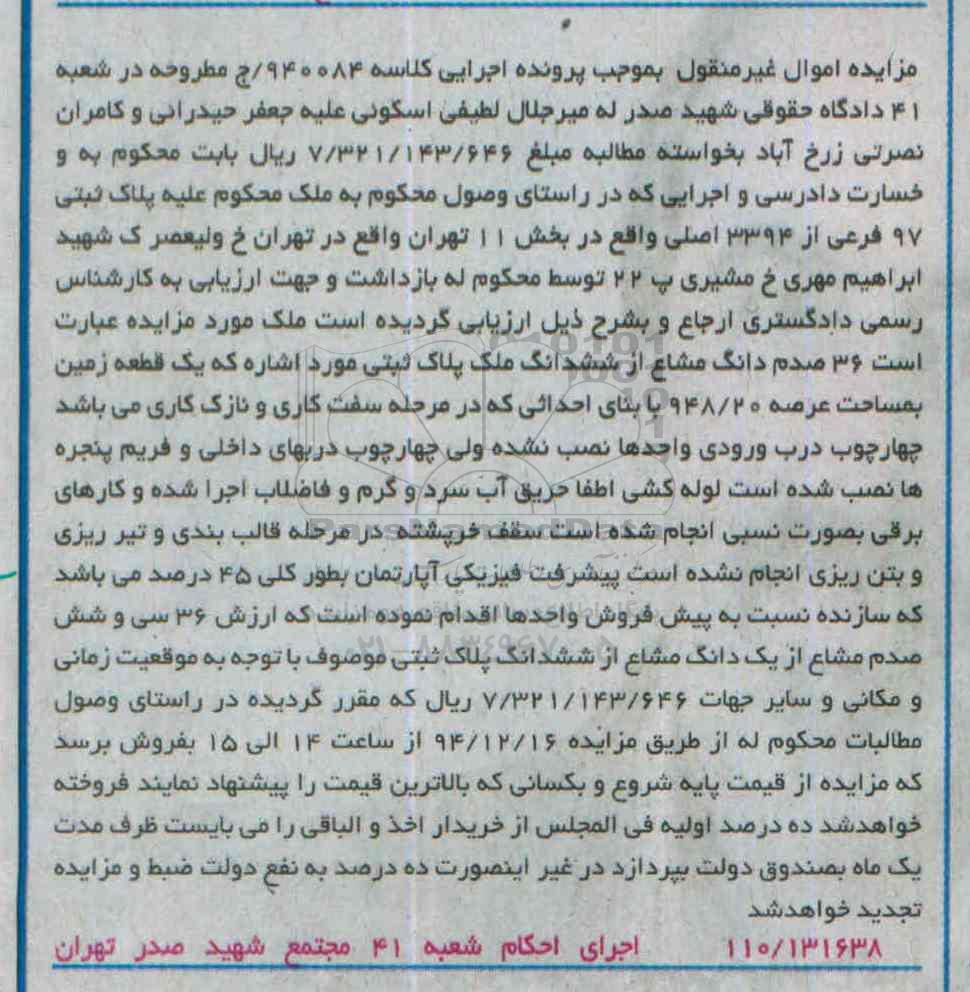 مزایده اموال غیرمنقول بموجب پرونده اجرایی کلاسه ۹۴۰۰۸۴/ج مطروحه در شعبه
۴۱ دادگاه حقوقی شهید صدر له میرجلال لطیفی اسکوئی علیه جعفر حیدرانی و کامران
نصرتی زرخ آباد بخواسته مطالبه مبلغ ۷/۳۲۱/۱۴۳/۶۴۶ ریال بابت محکوم به و
خسارت دادرسی و اجرایی که در راستای وصول محکوم به ملک محکوم علیه پلاک ثبتی
۹۷ فرعی از ۳۳۹۴ اصلی واقع در بخش ۱۱ تهران واقع در تهران خ ولیعصر ک شهید
ابراهیم مهری خ مشیری پ ۲۲ توسط محکوم له بازداشت و جهت ارزیابی به کارشناس
رسمی دادگستری ارجاع و بشرح ذیل ارزیابی گردیده است ملک مورد مزایده عبارت
است ۳۶ صدم دانگ مشاع از ششدانگ ملک پلاک ثبتی مورد اشاره که یک قطعه زمین
بمساحت عرصه ۹۴۸/۲۰ با بنای احداثی که در مرحله سفت کاری و نازک کاری می باشد
چهارچوب درب ورودی واحدها نصب نشده ولی چهارچوب دربهای داخلی و فریم پنجره
ها نصب شده است لوله کشی اطفا حریق آب سرد و گرم و فاضلاب اجرا شده و کارهای
برقی بصورت نسبی انجام شده است سقف خرپشته در مرحله قالب بندی و تیر ریزی
و بتن ریزی انجام نشده است پیشرفت فیزیکی آپارتمان بطور کلی ۴۵ درصد می باشد
که سازنده نسبت به پیش فروش واحدها اقدام نموده است که ارزش ۳۶ سی و شش
صدم مشاع از یک دانگ مشاع از ششدانگ پلاک ثبتی موصوف با توجه به موقعیت زمانی
و مکانی و سایر جهات ۷/۳۲۱/۱۴۳/۶۴۶ ریال که مقرر گردیده در راستای وصول
مطالبات محکوم له از طریق مزایده ۹۴/۱۲/۱۶ از ساعت ۱۴ الی ۱۵ بفروش برسد
که مزایده از قیمت پایه شروع و بکسانی که بالاترین قیمت را پیشنهاد نمایند فروخته
خواهدشد ده درصد اولیه فی المجلس از خریدار اخذ و الباقی را می بایست ظرف مدت
یک ماه بصندوق دولت بپردازد در غیر اینصورت ده درصد به نفع دولت ضبط و مزایده
تجدید خواهدشد
۱۱۰/۱۳۱۶۳۸ اجرای احکام شعبه ۴۱ مجتمع شهید صدر تهران
ParsNamadData